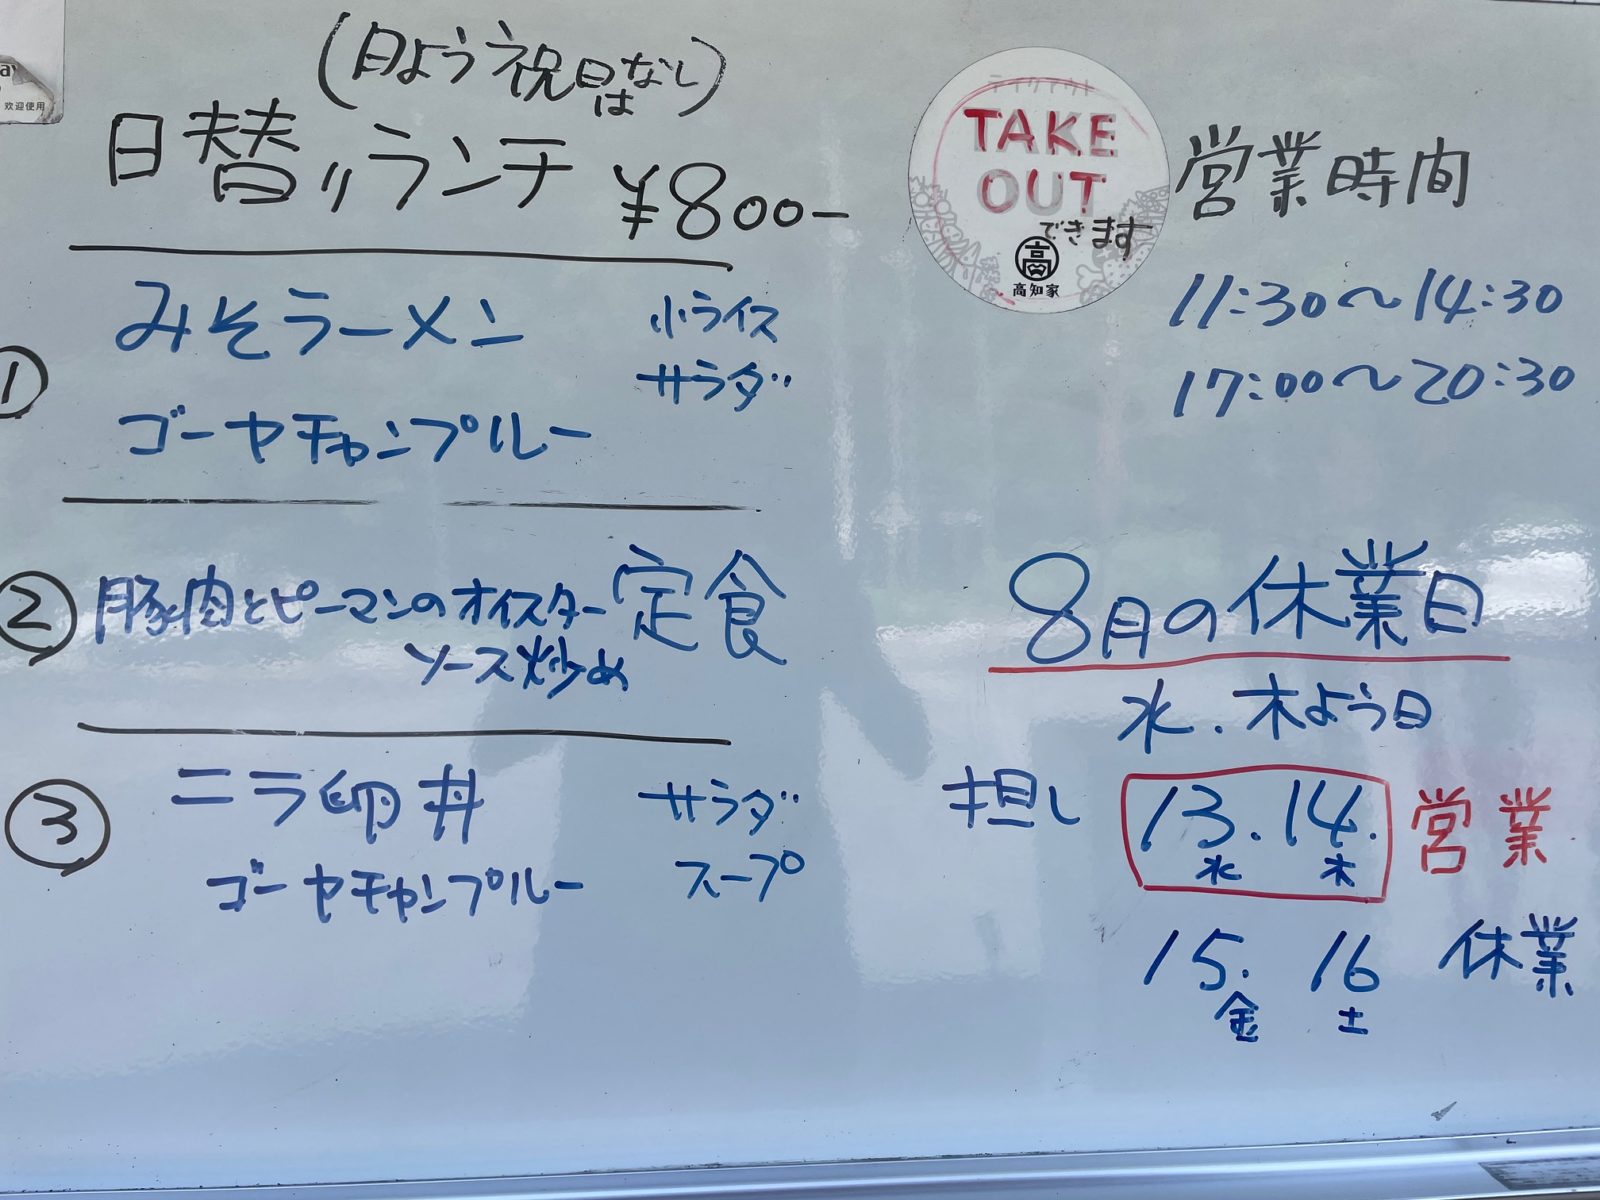 欢迎使用
(日よう祝日はなし)
日替りランチ ¥800-
① みそラーメン 小ライス
サラダ
ゴーヤチャンプルー
② 豚肉とピーマンのオイスター定食
ソース炒め
③ ニラ卵丼 サラダ
ゴーヤチャンプルー スープ
TAKE
OUT
できます
高
高知家
営業時間
11:30〜14:30
17:00〜20:30
8月の休業日
水.木よう日
担し 13.14. 営業
水 木
15. 16 休業
金 土